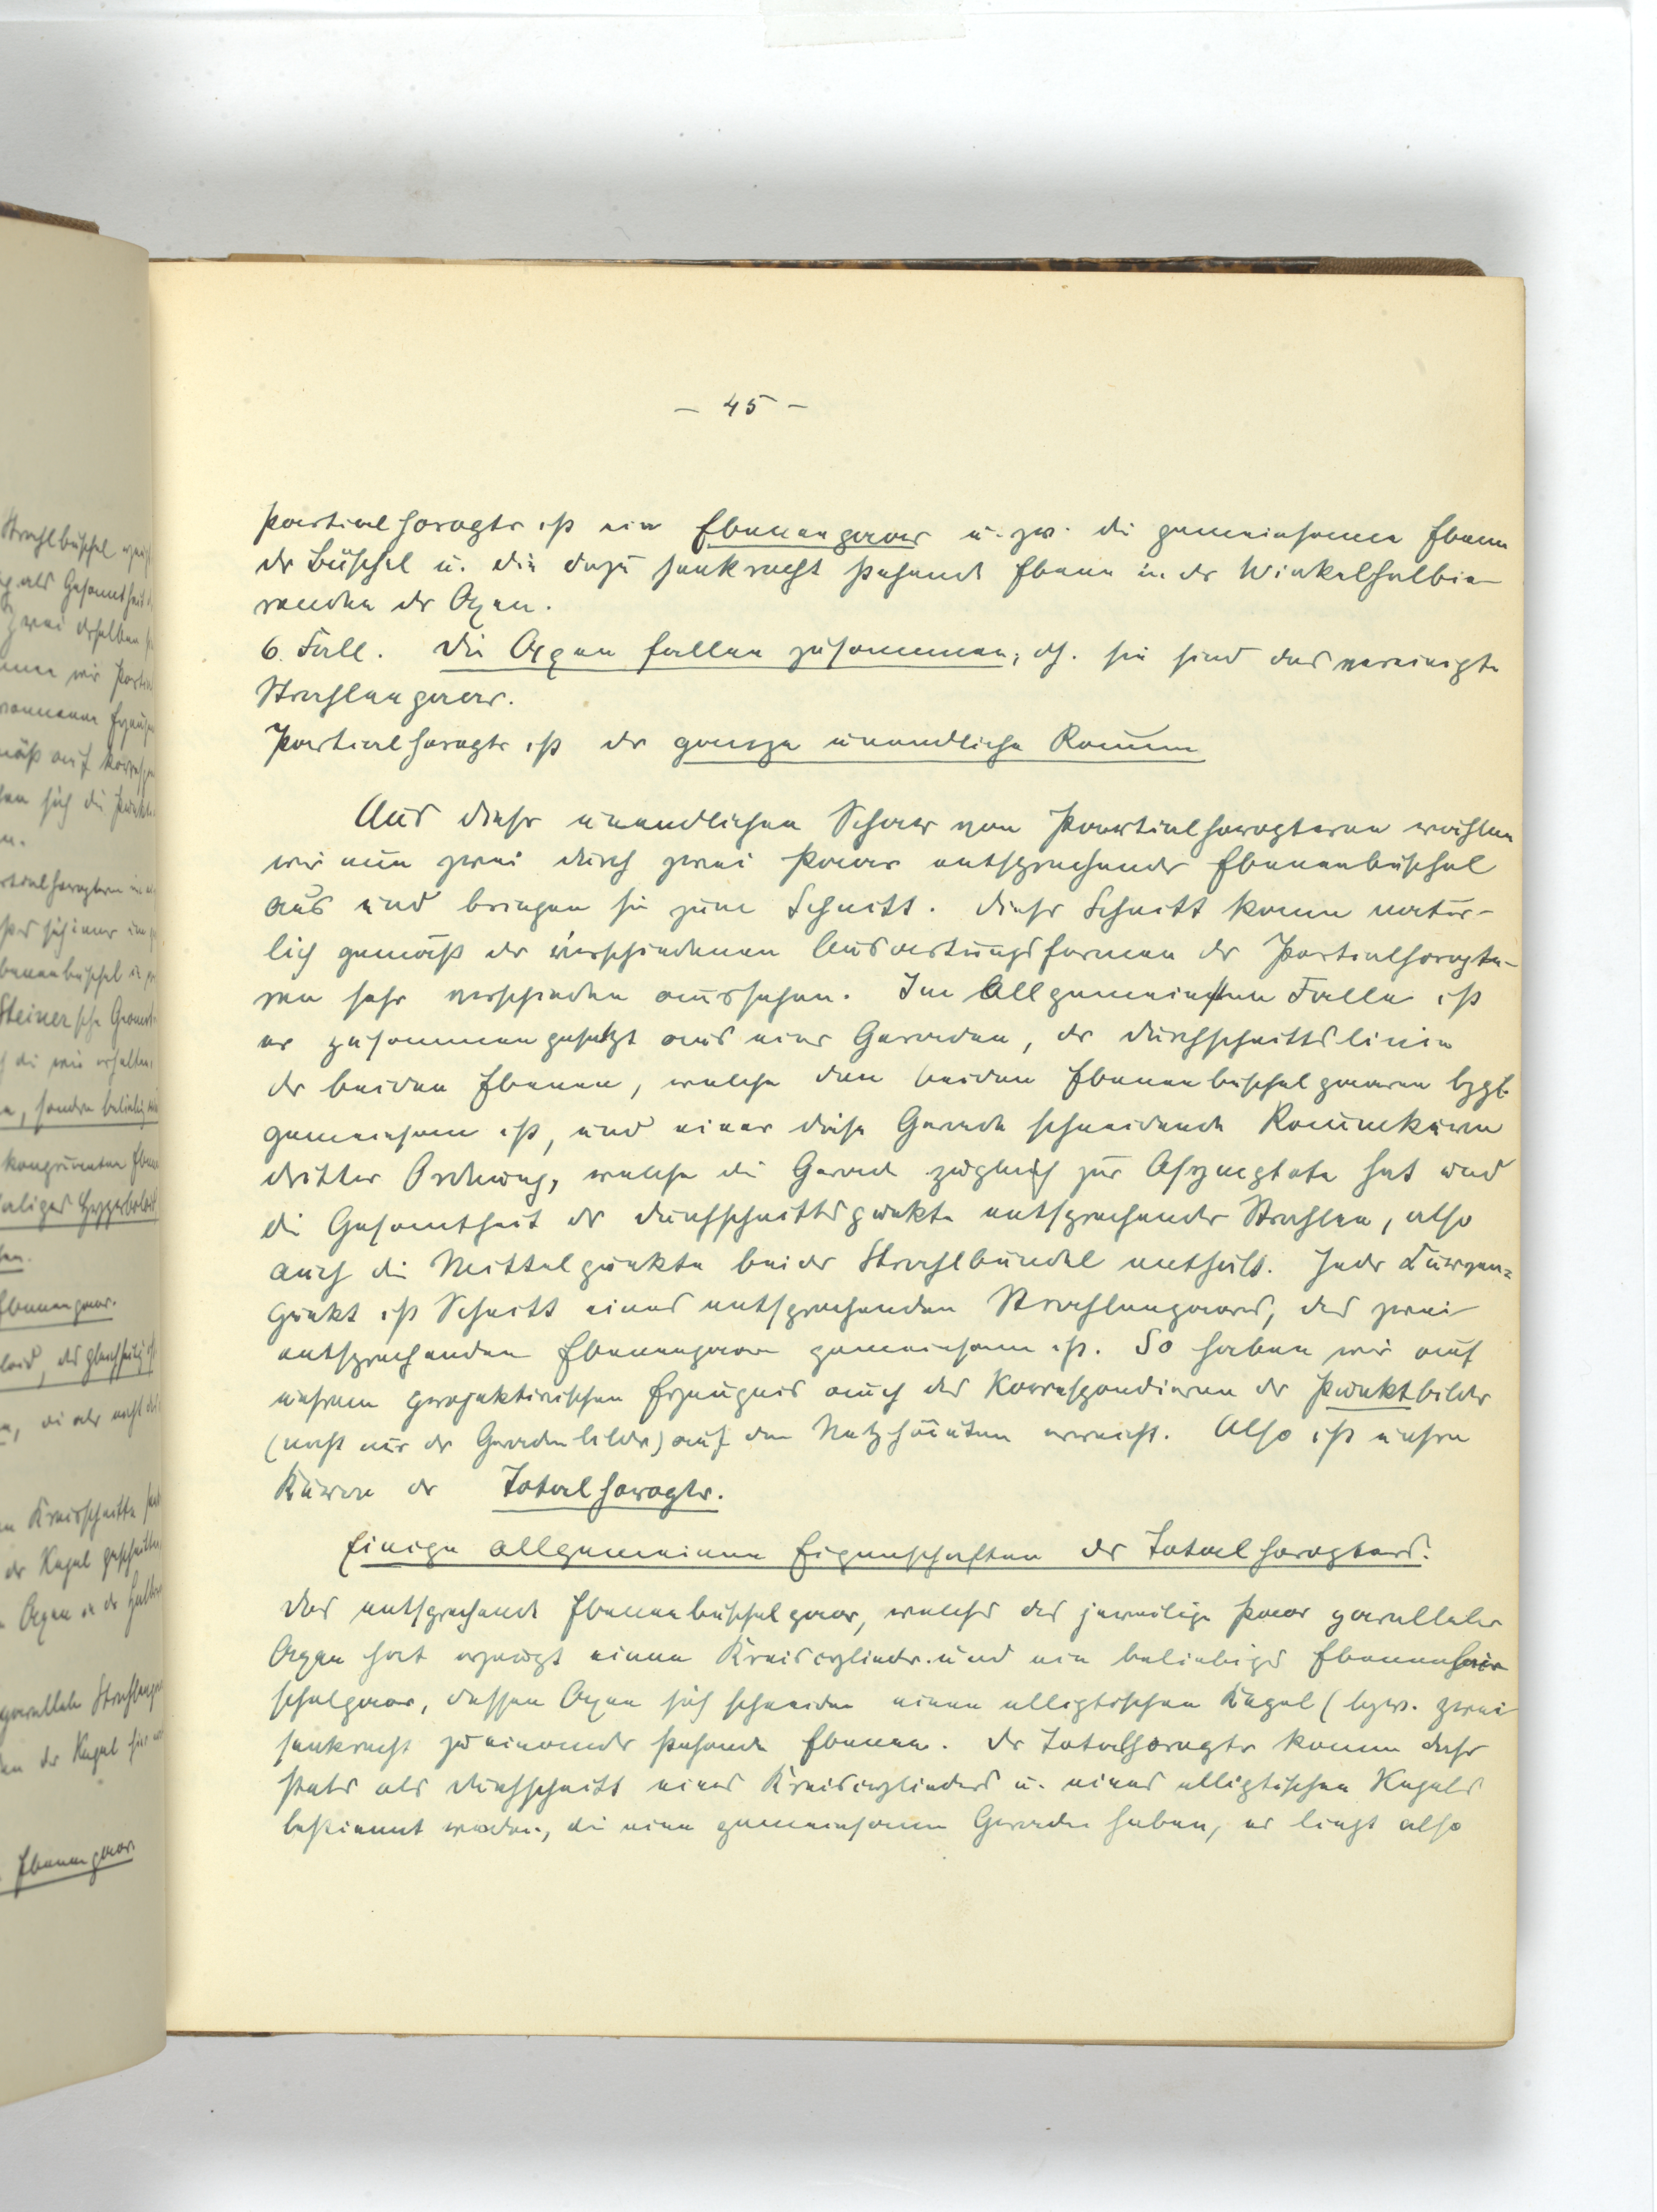 – 45 –
Partialhoropter ist ein Ebenenpaar u. zw. die gemeinsame Ebene
der Büschel u. die dazu senkrecht stehende Ebene in der Winkelhalbie-
renden der Axen.
6. Fall. Die Axen fallen zusammen, dh. sie sind das vereinigte
Strahlenpaar.
Partialhoropter ist der ganze unendliche Raum
Aus dieser unendlichen Schar von Partialhoropteren wählen
wir nun zwei durch zwei Paare entsprechender Ebenenbüschel
aus und bringen sie zum Schnitt. Dieser Schnitt kann natür-
lich gemäß der verschiedenen Ausartungsformen der Partialhoropte-
ren sehr verschieden aussehen. Im Allgemeinsten Falle ist
er zusammengesetzt aus einer Geraden, der Durchschnittslinie
der beiden Ebenen, welche den beiden Ebenenbüschelpaaren bzgl.
gemeinsam ist, und einer diese Gerade schneidende Raumkurve
dritter Ordnung, welche die Gerade zugleich zur Asymptote hat und
die Gesamtheit der Durchschnittspunkte entsprechender Strahlen, also
auch die Mittelpunkte beider Strahlbündel enthält. Jeder Kurven-
punkt ist Schnitt eines entsprechenden Strahlenpaares, das zwei
entsprechenden Ebenenpaaren gemeinsam ist. So haben wir auf
unserem projektivischen Erzeugnis auch das Korrespondieren der Punktbilder
(nicht nur der Geradenbilder) auf den Netzhäuten erreicht. Also ist unsere
Kurve der Totalhoropter.
Einige allgemeinen Eigenschaften des Totalhoropters.
Das entsprechende Ebenenbüschelpaar, welches das jeweilige Paar paralleler
Axen hat erzeugt einen Kreiscylinder und ein beliebiges Ebenenbü-
schelpaar, dessen Axen sich schneiden einen elliptischen Kegel (bzw. zwei
senkrecht zu einander stehende Ebenen. Der Totalhoropter kann daher
stets als Durchschnitt eines Kreiscylinders u. eines elliptischen Kegels
bestimmt werden, die eine gemeinsame Gerade haben, er liegt also